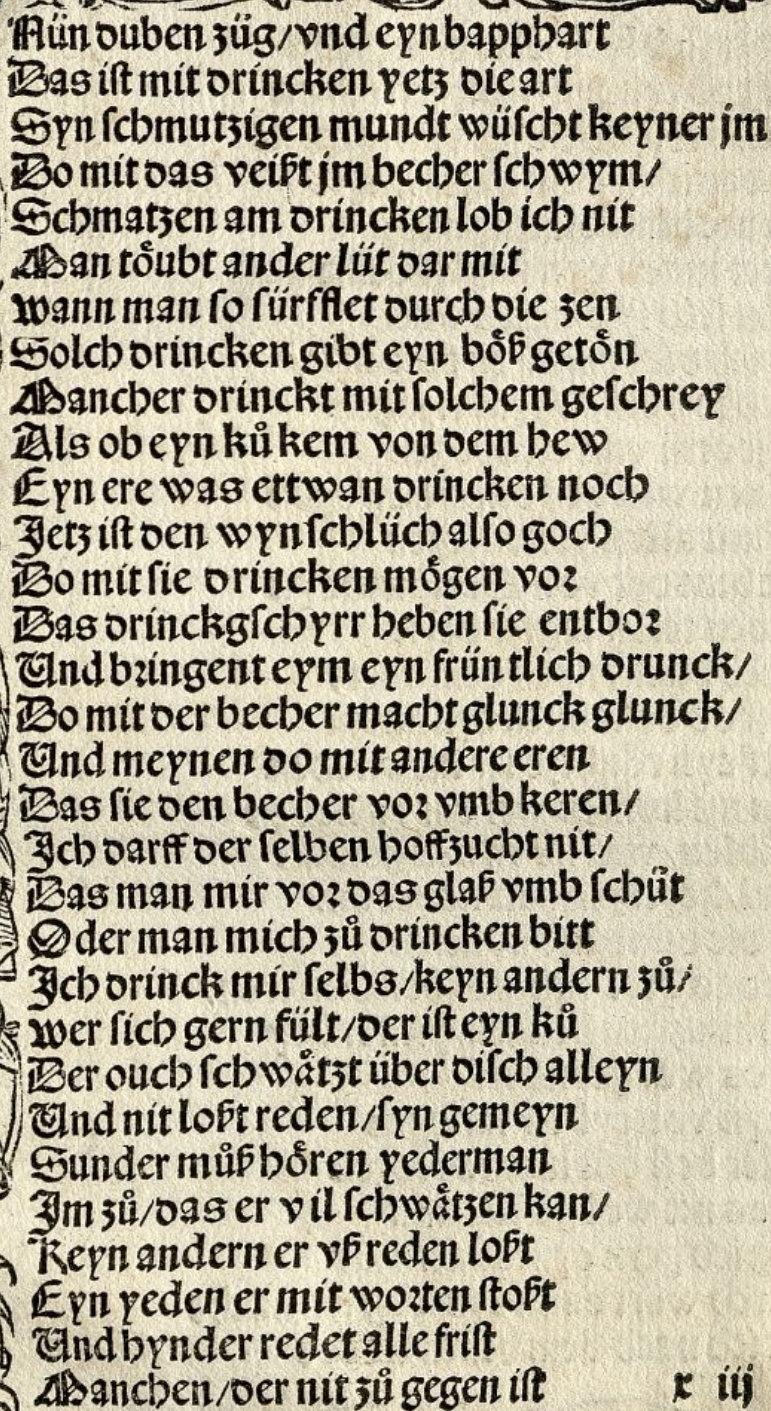 Nün duben züg/vnd eyn bapphart
Das ist mit drincken yetz die art
Syn schmutzigen mundt wüscht keyner jm
Do mit das veißt jm becher schwym/
Schmatzen am drincken lob ich nit
Man toͤubt ander lüt dar mit
wann man so sürfflet durch die zen
Solch drincken gibt eyn boͤß getoͤn
Mancher drinckt mit solchem geschrey
Als ob eyn kuͦ kem von dem hew
Eyn ere was ettwan drincken noch
Jetz ist den wynschlüch also goch
Do mit sie drincken moͤgen vor
Das drinckgschyrr heben sie entbor
Und bringent eym eyn früntlich drunck/
Do mit der becher macht glunck glunck/
Und meynen do mit andere eren
Das sie den becher vor vmb keren/
Ich darff der selben hoffzucht nit/
Das man mir vor das glaß vmb schüt
Oder man mich zuͦ drincken bitt
Ich drinck mir selbs/keyn andern zuͦ/
wer sich gern fült/der ist eyn kuͦ
Der ouch schwaͤtzt über disch alleyn
Und nit loßt reden/syn gemeyn
Sunder muͦß hoͤren yederman
Im zuͦ/das er vil schwaͤtzen kan/
Keyn andern er vß reden loßt
Eyn yeden er mit worten stoßt
Und hynder redet alle frist
Manchen/der nit zuͦ gegen ist x iij